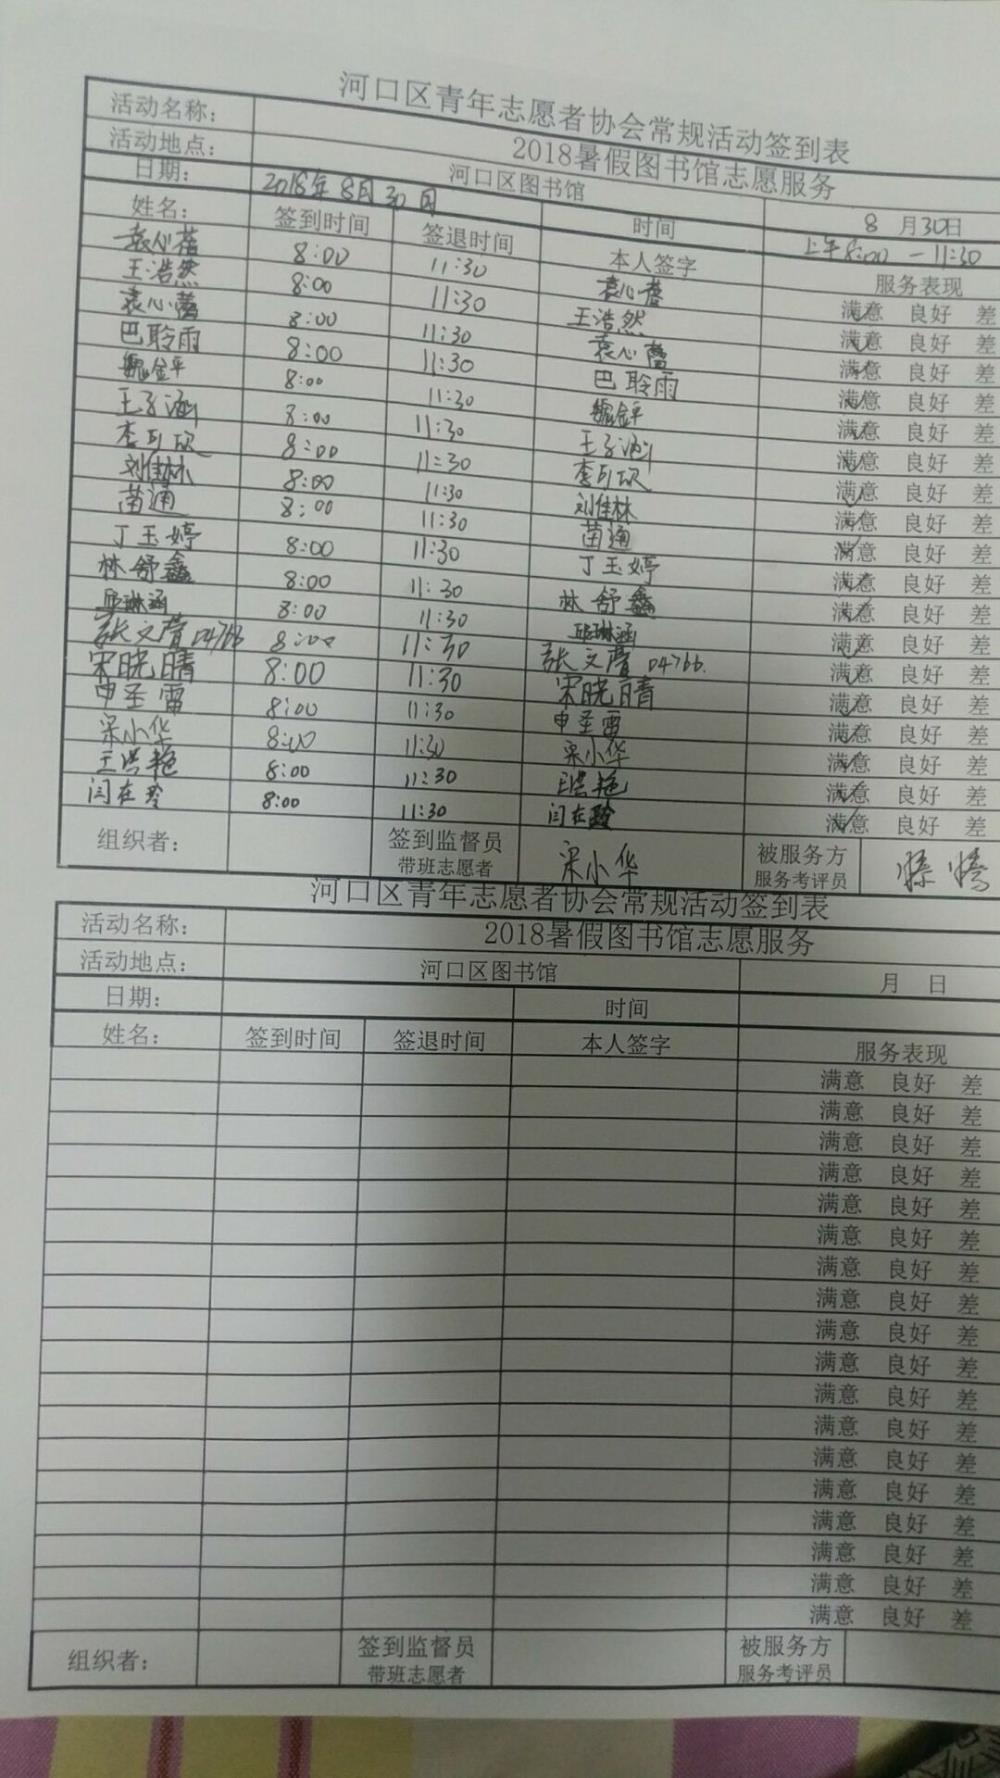 河口区青年志愿者协会常规活动签到表
活动名称： 2018暑假图书馆志愿服务
活动地点： 河口区图书馆 8 月30日
日期： 2018年8月30日 时间 上午8:00 — 11:30
姓名： 签到时间 签退时间 本人签字 服务表现
袁心蓓 8:00 11:30 袁心蓓 满意 良好 差
王浩然 8:00 11:30 王浩然 满意 良好 差
袁心蕾 8:00 11:30 袁心蕾 满意 良好 差
巴聆雨 8:00 11:30 巴聆雨 满意 良好 差
魏金平 8:00 11:30 魏金平 满意 良好 差
王子涵 8:00 11:30 王子涵 满意 良好 差
李可欣 8:00 11:30 李可欣 满意 良好 差
刘佳林 8:00 11:30 刘佳林 满意 良好 差
苗通 8:00 11:30 苗通 满意 良好 差
丁玉婷 8:00 11:30 丁玉婷 满意 良好 差
林舒鑫 8:00 11:30 林舒鑫 满意 良好 差
琳涵 8:00 11:30 琳涵 满意 良好 差
张文 04766 8:00 11:30 张文 04766. 满意 良好 差
宋晓晴 8:00 11:30 宋晓晴 满意 良好 差
申圣雷 8:00 11:30 申圣雷 满意 良好 差
梁小华 8:00 11:30 梁小华 满意 良好 差
王洪艳 8:00 11:30 王洪艳 满意 良好 差
闫在玲 8:00 11:30 闫在玲 满意 良好 差
组织者： 签到监督员 梁小华 被服务方
带班志愿者 服务考评员
河口区青年志愿者协会常规活动签到表
活动名称： 2018暑假图书馆志愿服务
活动地点： 河口区图书馆 月 日
日期： 时间
姓名： 签到时间 签退时间 本人签字 服务表现
满意 良好 差
满意 良好 差
满意 良好 差
满意 良好 差
满意 良好 差
满意 良好 差
满意 良好 差
满意 良好 差
满意 良好 差
满意 良好 差
满意 良好 差
满意 良好 差
满意 良好 差
满意 良好 差
满意 良好 差
满意 良好 差
满意 良好 差
满意 良好 差
组织者： 签到监督员 被服务方
带班志愿者 服务考评员